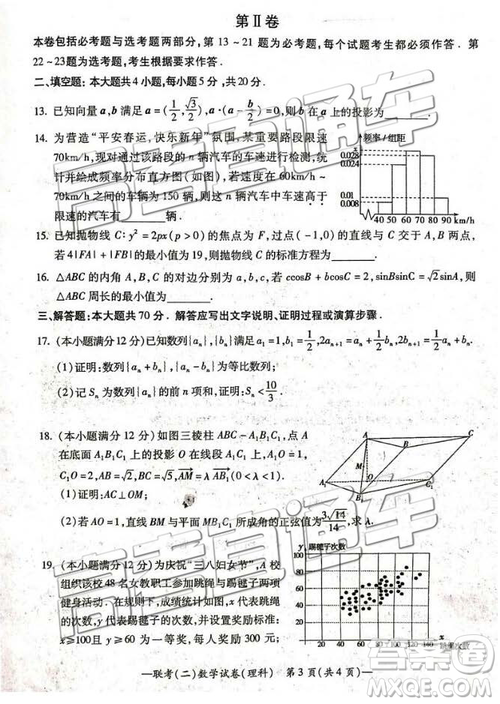 第Ⅱ卷
本卷包括必考题与选考题两部分,第 13~21 题为必考题,每个试题考生都必须作答.第
22~23题为选考题,考生根据要求作答.
二、填空题:本大题共4小题,每小题5分,共20分.
13. 已知向量 a,b 满足 a=(1/2,√3/2),a·(a-b/2)=0,则 b 在 a 上的投影为
14. 为营造“平安春运,快乐新年”氛围,某重要路段限速
70km/h,现对通过该路段的 n 辆汽车的车速进行检测,统
计并绘成频率分布直方图(如图).若速度在60km/h~
70km/h之间的车辆为150辆,则这 n 辆汽车中车速高于
限速的汽车有 辆.
频率/组距
0.028
0.024
0.010
0.008
40 50 60 70 80 90 km/h
15. 已知抛物线 C:y²=2px(p>0)的焦点为 F,过点(-1,0)的直线与 C 交于 A,B 两点,
若4|FA|+|FB|的最小值为19,则抛物线 C 的标准方程为
16. △ABC 的内角 A,B,C 的对边分别为 a,b,c,若 ccosB+bcosC=2,sinBsinC=
△ABC 周长的最小值为
三、解答题:本大题共70分.解答应写出文字说明、证明过程或演算步骤.
17. (本小题满分12分)已知数列{aₙ},{bₙ}满足 a₁=2,b₁=1/2,
(1)证明:数列{aₙ+bₙ},{aₙ-bₙ}为等比数列;
(2)记 Sₙ 为数列{aₙ}的前 n 项和,证明:Sₙ<10/3.
18. (本小题满分12分)如图三棱柱 ABC-A₁B₁C₁ 中,点 A
在底面 A₁B₁C₁ 内的射影 O 在线段 A₁C₁ 上,
C₁O=2,
(1)证明:AC⊥OM;
(2)若 AO=1,直线 BB₁与平面 所成角的正弦值为3√14/14,求λ
A
B
C
M
A₁
O
B₁
C₁
19. (本小题满分12分)为庆祝“三八妇女节”,A 校
组织该校48名女教职工参加跳绳与踢毽子两项
健身活动,现以 x 表示跳绳,y 表示踢毽子的次
数(次数均为整数),成绩统计如图.若规定:
x≥100 且 y≥60 为优秀,每人奖励 300 元;
踢毽子次数
y
100
80
60
40
20
x
跳绳次数
—联考(二)数学试卷(理科) 第3页(共4页)—
高考直通车
高考直通车